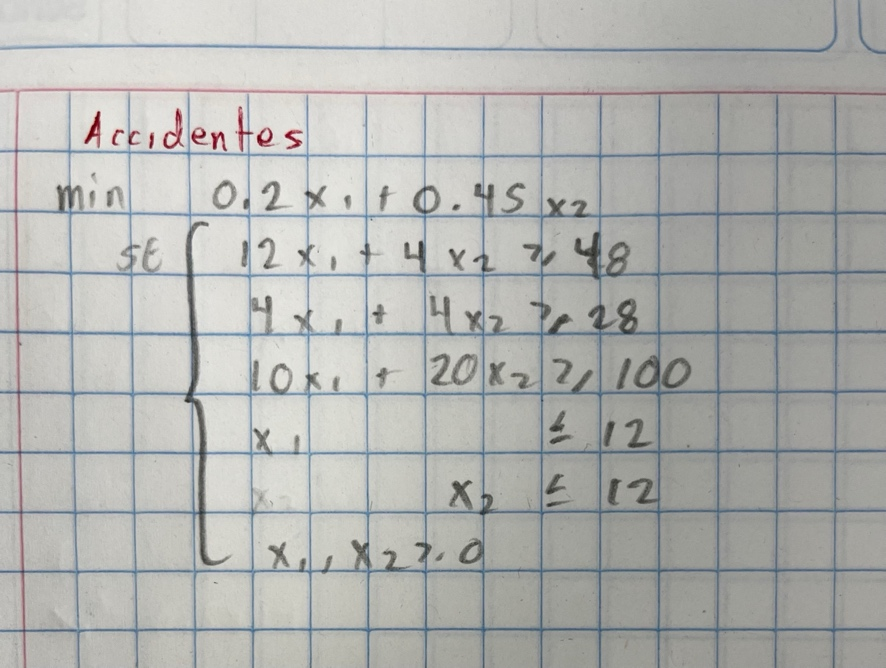 Accidentes
min 0.2 x₁ + 0.45 x₂
st 12 x₁ + 4 x₂ ≥ 48
4 x₁ + 4 x₂ ≥ 28
10 x₁ + 20 x₂ ≥ 100
x₁ ≤ 12
x₂ ≤ 12
x₁, x₂ ≥ 0